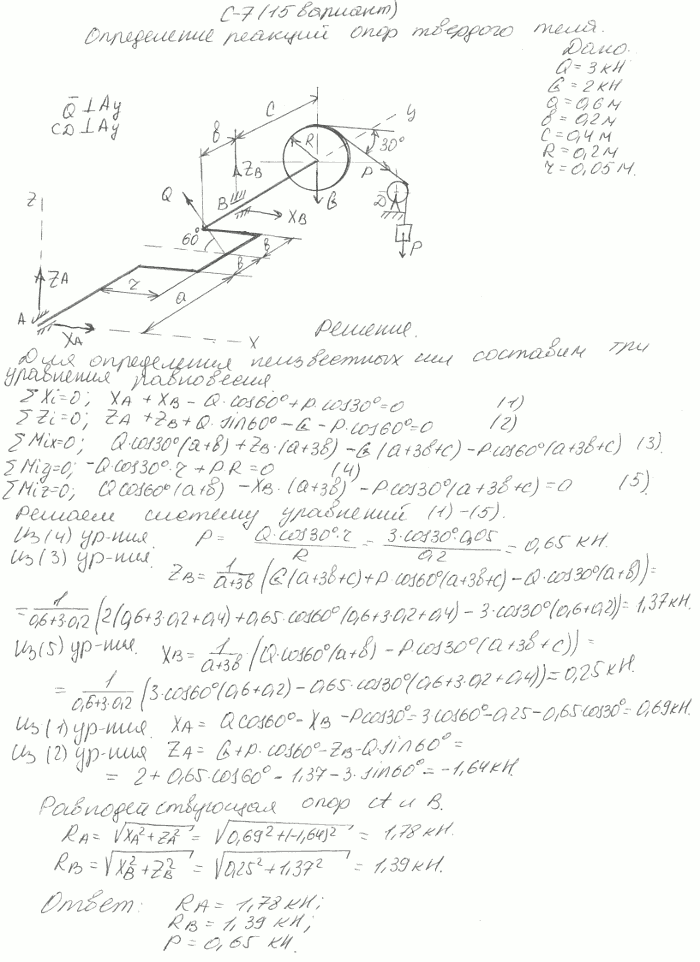 С-7 (15 вариант)
Определение реакций опор твердого тела.
Дано:
Q = 3 кН
G = 2 кН
a = 0,6 м
b = 0,2 м
c = 0,4 м
R = 0,2 м
r = 0,05 м.
Q̄ ⊥ Ay
CD ⊥ Ay
c
b
R
y
30°
ZB
B
P
D
Q
G
XB
P
60°
b
b
Z
ZA
r
a
A
XA
X
Решение.
Для определения неизвестных сил составим три
уравнения равновесия
ΣXi=0; XA + XB - Q·cos60° + P·cos30° = 0 (1)
ΣZi=0; ZA + ZB + Q·sin60° - G - P·cos60° = 0 (2)
ΣMix=0; Q·cos30°(a+b) + ZB·(a+3b) - G(a+3b+c) - P·cos60°(a+3b+c) (3).
ΣMiy=0; -Q·cos30°·r + P·R = 0 (4)
ΣMiz=0; Q·cos60°(a+b) - XB·(a+3b) - P·cos30°(a+3b+c) = 0 (5)
Решаем систему уравнений (1) - (5).
Из (4) ур-ния P = Q·cos30°·r / R = 3·cos30°·0,05 / 0,2 = 0,65 кН.
Из (3) ур-ния: ZB = 1/(a+3b) (G(a+3b+c) + P·cos60°(a+3b+c) - Q·cos30°(a+b)) =
= 1/(0,6+3·0,2) (2(0,6+3·0,2+0,4) + 0,65·cos60°(0,6+3·0,2+0,4) - 3·cos30°(0,6+0,2)) = 1,37 кН.
Из (5) ур-ния. XB = 1/(a+3b) · (Q·cos60°(a+b) - P·cos30°(a+3b+c)) =
= 1/(0,6+3·0,2) (3·cos60°(0,6+0,2) - 0,65·cos30°(0,6+3·0,2+0,4)) = 0,25 кН.
Из (1) ур-ния XA = Qcos60° - XB - Pcos30° = 3cos60° - 0,25 - 0,65cos30° = 0,69 кН.
Из (2) ур-ния ZA = G + P·cos60° - ZB - Q·sin60° =
= 2 + 0,65·cos60° - 1,37 - 3·sin60° = -1,64 кН.
Равнодействующая опор A и B.
RA = √(XA² + ZA²) = √(0,69² + (-1,64)²) = 1,78 кН.
RB = √(XB² + ZB²) = √(0,25² + 1,37²) = 1,39 кН.
Ответ: RA = 1,78 кН;
RB = 1,39 кН;
P = 0,65 кН.